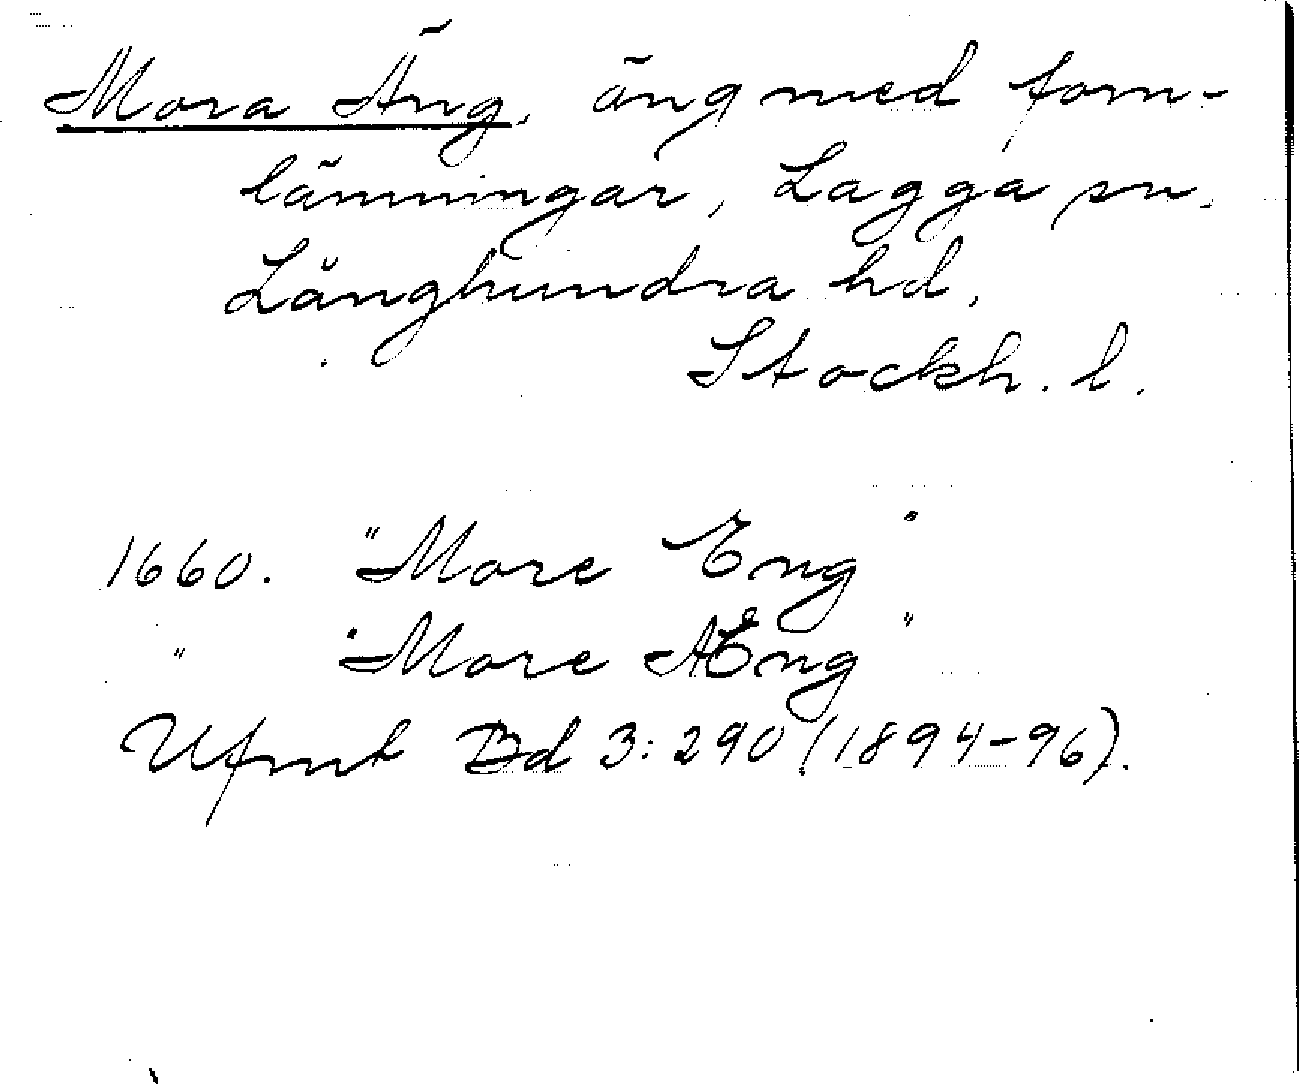 Mora Äng, äng med forn-
lämningar, Lagga sn.
Långhundra hd,
Stockh. l.
1660. "More Eng"
" "More AEng"
Ufmt Bd 3: 290 (1894-96).